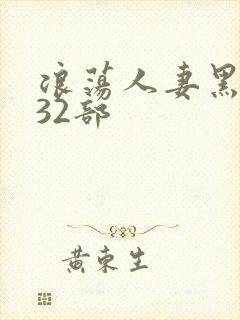 浪荡人妻黑
32部
黄东生